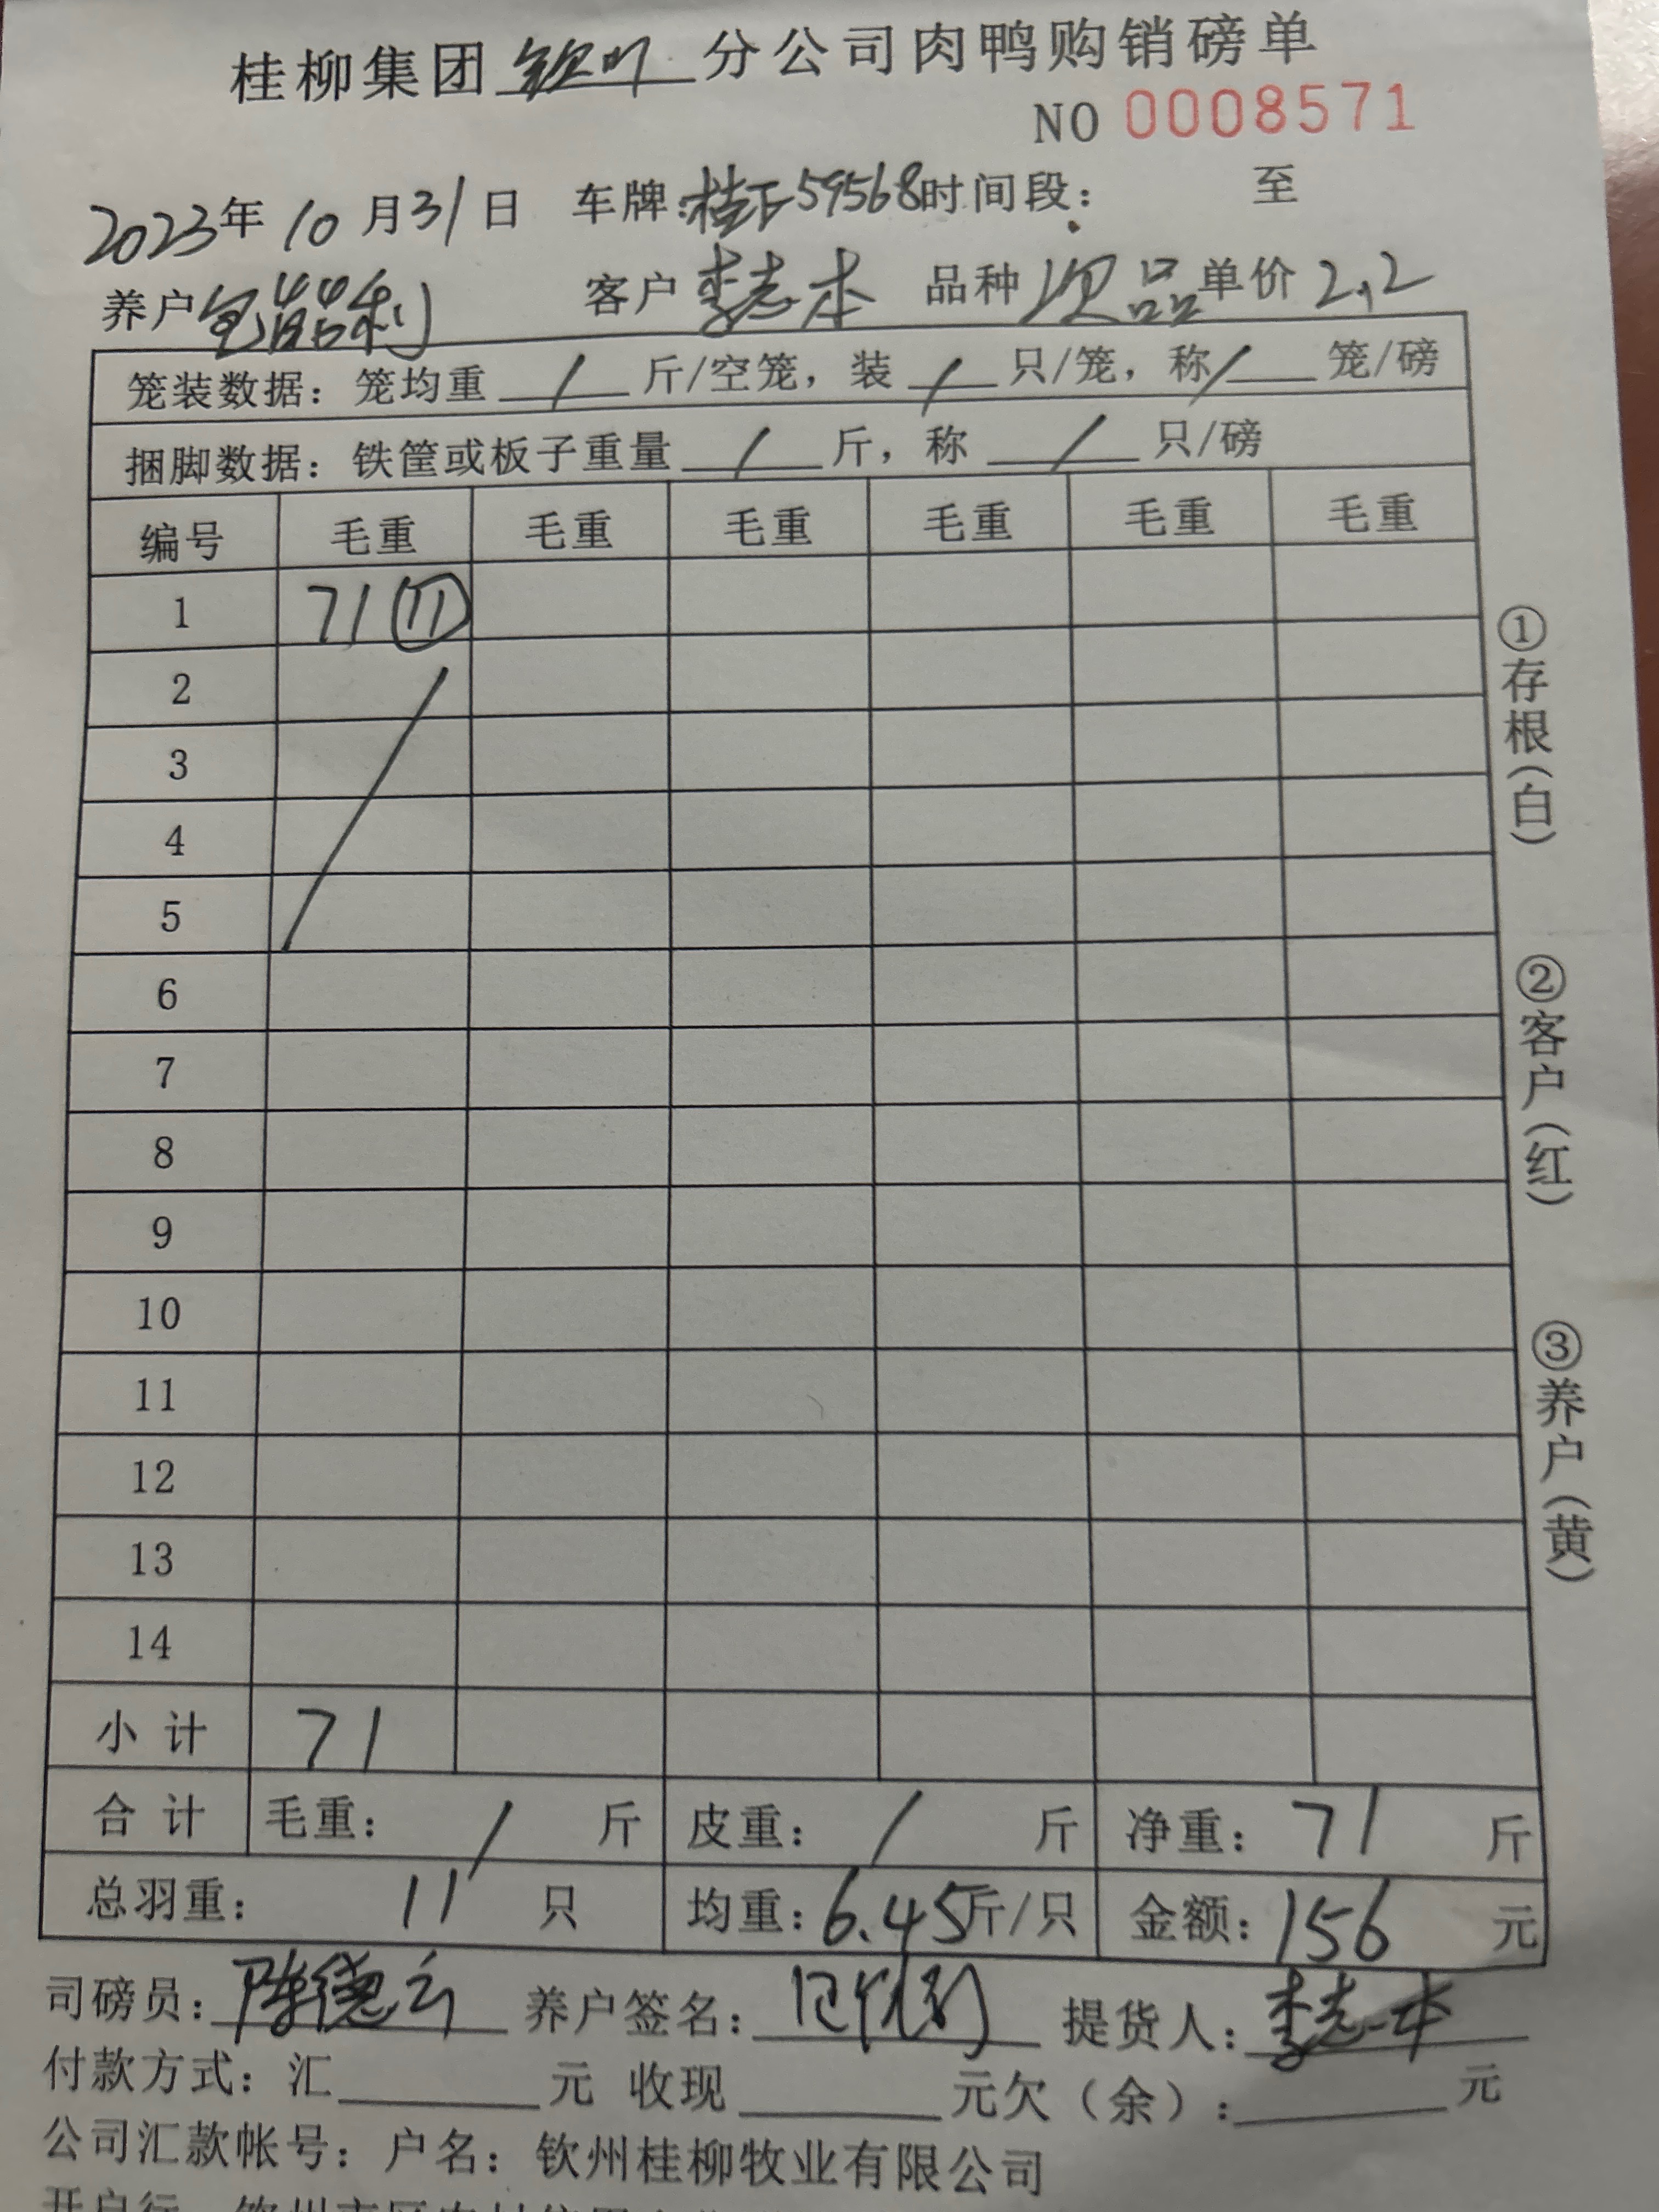 桂柳集团 钦州 分公司肉鸭购销磅单
NO 0008571
2023年 10 月 31 日 车牌: 59568 时间段: 至
养户 客户 李志本 品种 次品 单价 2.2
笼装数据: 笼均重 / 斤/空笼, 装 / 只/笼, 称 / 笼/磅
捆脚数据: 铁筐或板子重量 / 斤, 称 / 只/磅
编号 毛重 毛重 毛重 毛重 毛重 毛重
1 71 ⑪
2
3
4
5
6
7
8
9
10
11
12
13
14
小计 71
合计 毛重: / 斤 皮重: / 斤 净重: 71 斤
总羽重: 11 只 均重: 6.45 斤/只 金额: 156 元
司磅员: 陈德云 养户签名: 提货人: 李志本
付款方式: 汇 元 收现 元欠(余): 元
公司汇款帐号: 户名: 钦州桂柳牧业有限公司
①存根(白)
②客户(红)
③养户(黄)